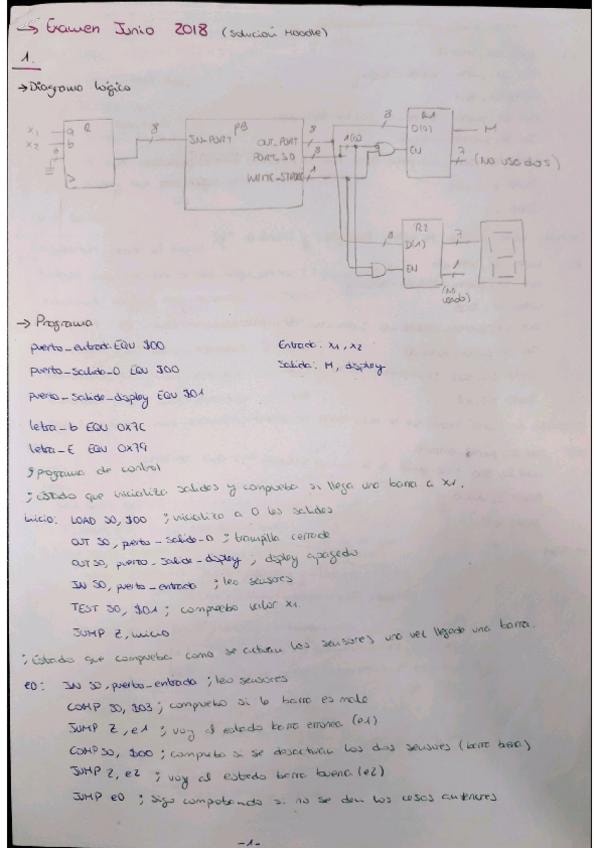 → Examen Junio 2018 (solución Moodle)
1.
→ Diagrama lógico
R
x1 a
x2 b
8
PB
IN_PORT
OUT_PORT
PORT_ID
WRITE_STROBE
8
8
1
1(0)
8
R1
D(0)
EN
M
7
(No usados)
8
R2
D(1)
EN
7
1
→ Programa
puerto_entrada EQU $00
Entrada: x1, x2
puerto_salida_0 EQU $00
Salida: M, display
puerto_salida_display EQU $01
letra_b EQU 0x7C
letra_E EQU 0x79
; programa de control
; estado que inicializa salidas y comprueba si llega una barra a x1.
inicio: LOAD S0, $00 ; inicializo a 0 las salidas
OUT S0, puerto_salida_0 ; trampilla cerrada
OUT S0, puerto_salida_display ; display apagado
IN S0, puerto_entrada ; leo sensores
TEST S0, $01 ; compruebo valor x1.
JUMP Z, inicio
; estado que comprueba como se activan los sensores una vez llegado una barra.
e0: IN S0, puerto_entrada ; leo sensores
COMP S0, $03 ; compruebo si la barra es mala
JUMP Z, e1 ; voy al estado barra erronea (e1)
COMP S0, $00 ; compruebo si se desactivan los dos sensores (barra buena)
JUMP Z, e2 ; voy al estado barra buena (e2)
JUMP e0 ; sigo comprobando si no se dan los casos anteriores
-1-